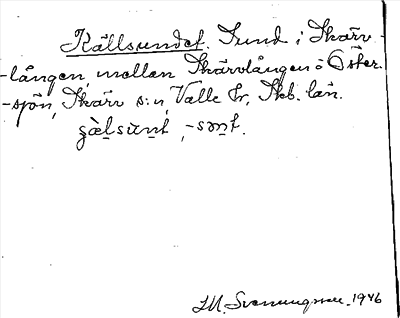 Källsundet. Sund i Skärv-
-lången, mellan Skärvlången o Öster-
-sjön, Skärv s:n, Valle hr, Skb. län.
-sm̥t.
J.M. Svenungsson. 1946